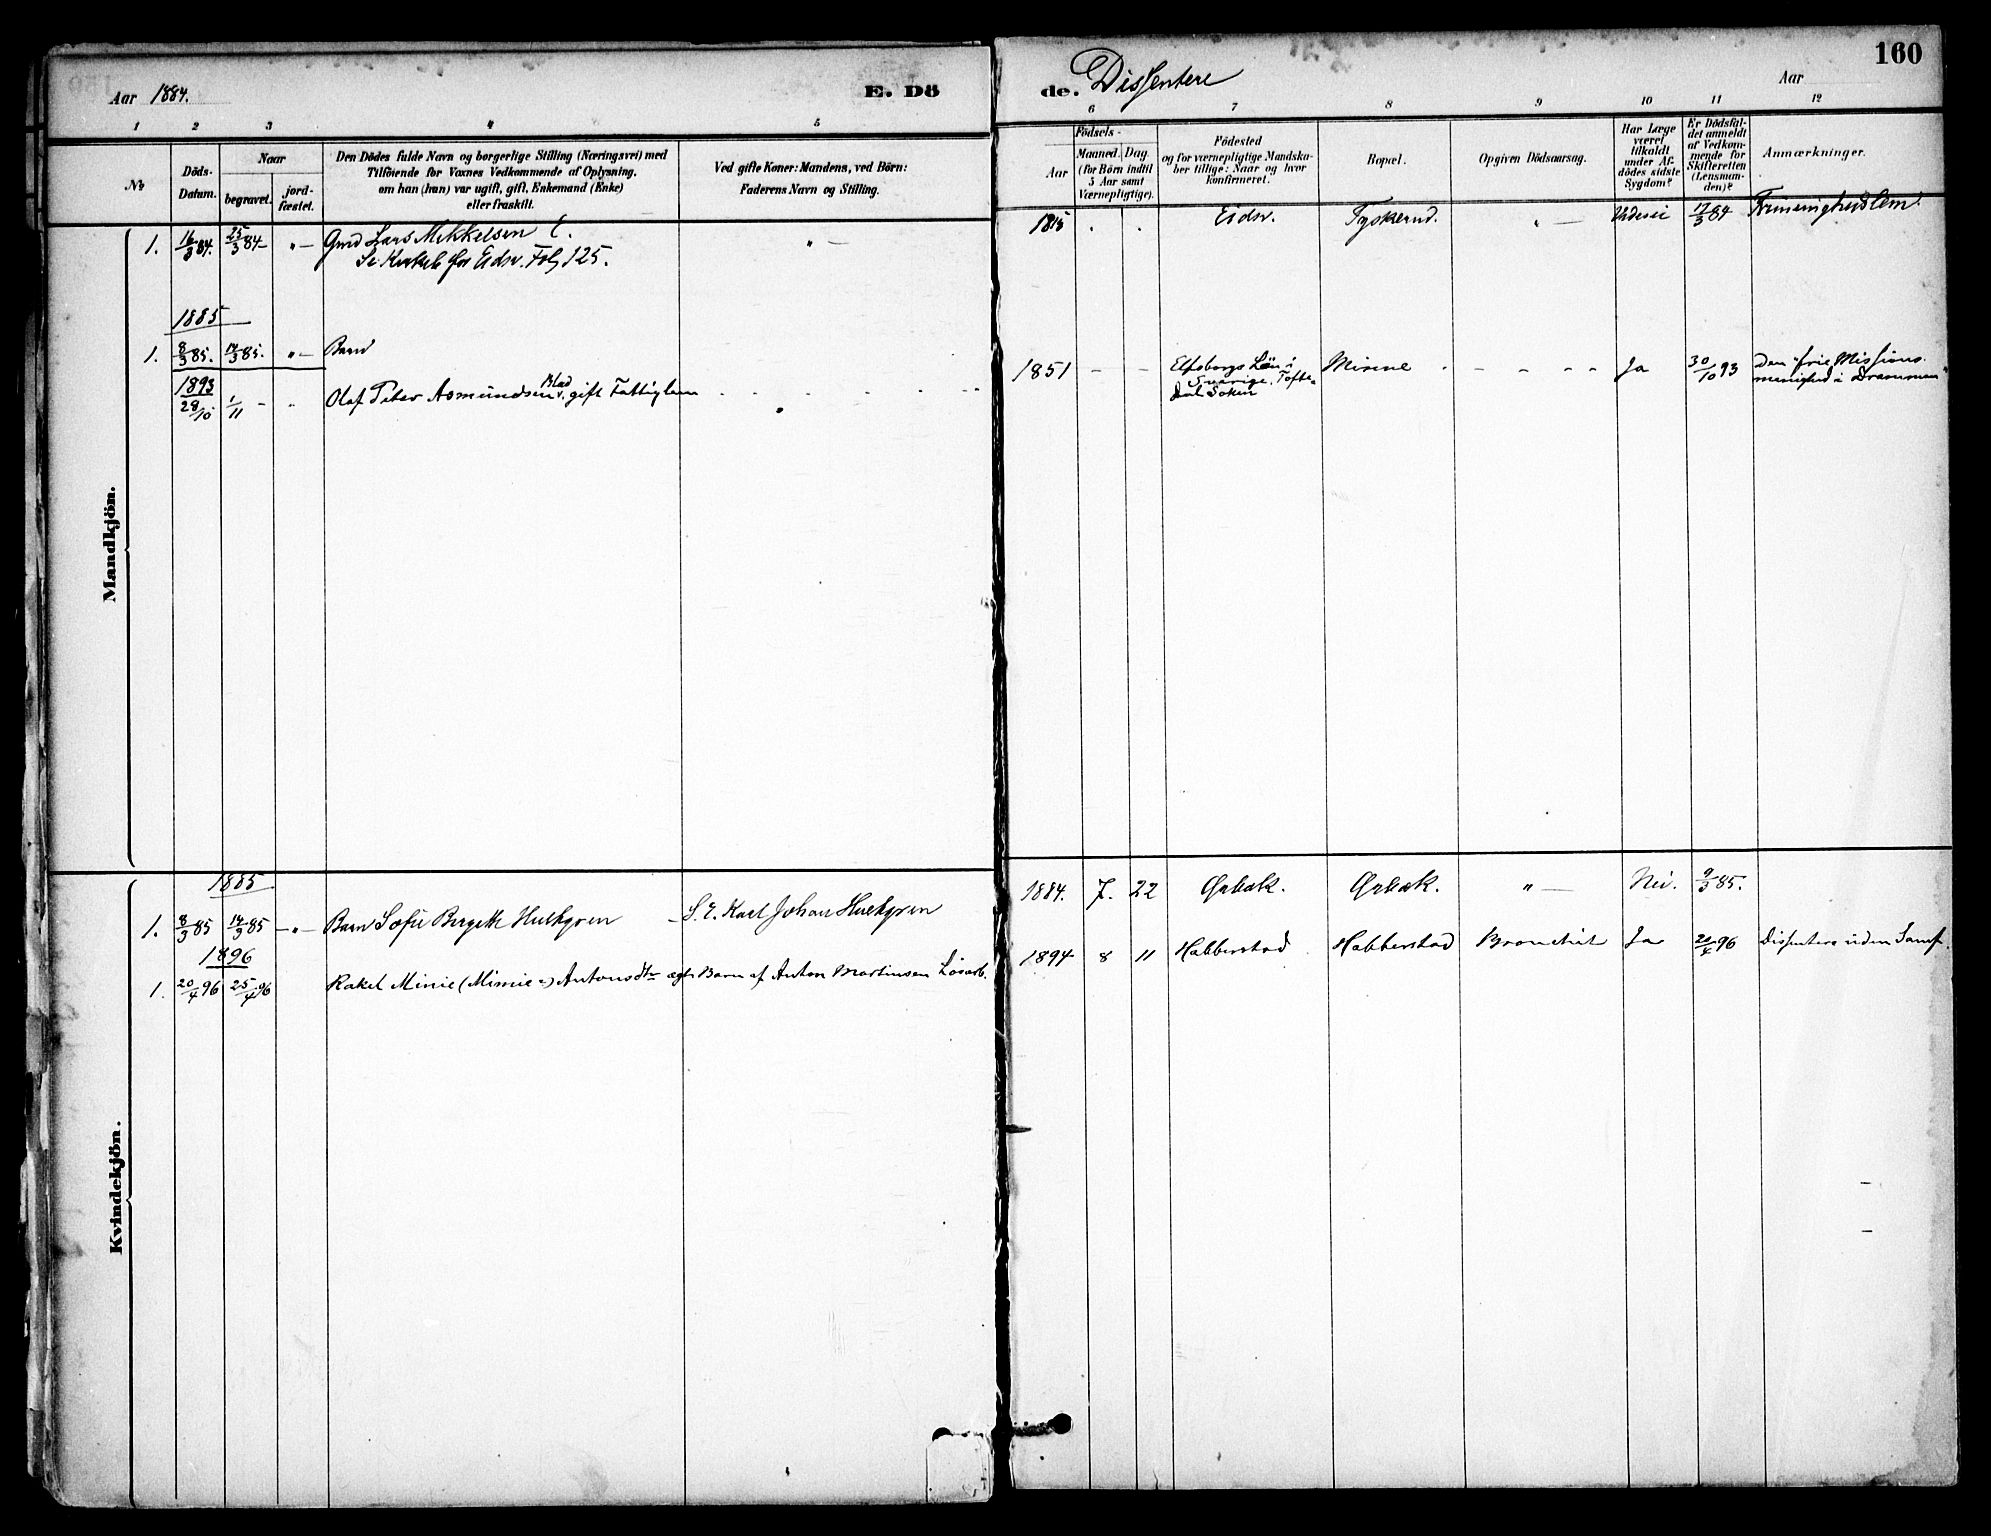 Aar 1884.
E. Dö
de. Dissentere
Aar
160
1 2 3 4 5 6 7 8 9 10 11 12
No
Döds-
Datum.
Naar
begravet.
jord-
fæstet.
Den Dödes fulde Navn og borgerlige Stilling (Næringsvei) med
Tilföiende for Voxnes Vedkommende af Oplysning,
om han (hun) var ugift, gift, Enkemand (Enke)
eller fraskilt.
Ved gifte Koner: Mandens, ved Börn:
Faderens Navn og Stilling.
Födsels-
Aar
Maaned.
Dag.
(for Börn indtil
5 Aar samt
Værnepligtige).
Födested
og for værnepligtige Mandska-
ber tillige: Naar og hvor
konfirmeret.
Bopæl.
Opgiven Dödsaarsag.
Har Læge
været
tilkaldt
under Af-
dödes sidste
Sygdom?
Er Dödsfal-
det anmeldt
af Vedkom-
mende for
Skifteretten
(Lensman-
den)?
Anmærkninger.
Mandkjön.
1. 16/3 84. 25/3 84 " — Gmd Lars Mikkelsen " — 1815 . . Eidsv. Tyskerud. " — 17/3 84
Se Kirkeb for Eidsv. Fol 125.
1885
1. 8/3 85. 14/3 85. " — Barn
1893
28/10 1/11 - - Olaf Peter Asmundsen Blad, gift Fattiglem 1851 - - Elfsborgs Län i Minne - - - - Ja 30/10 93 Den "frie Missions-
Sverige, Tofte-
dal Soken
menighed i Drammen"
Kvindekjön.
1885
1. 8/3 85 14/3 85 — " — Barn Sofie Bergette Hultgren — S. E. Karl Johan Hultgren 1884. 7. 22 Ørbæk. Ørbæk. " — Nei. 9/3 85.
1896
1. 20/4 96 25/4 96 Rakel Minie (Mimie ) Antonsdtr ægte Barn af Anton Martinsen Løsarb. 1894 8 11 Habberstad Habberstad Bronchit Ja 20/4 96 Dissentere uden Samf.